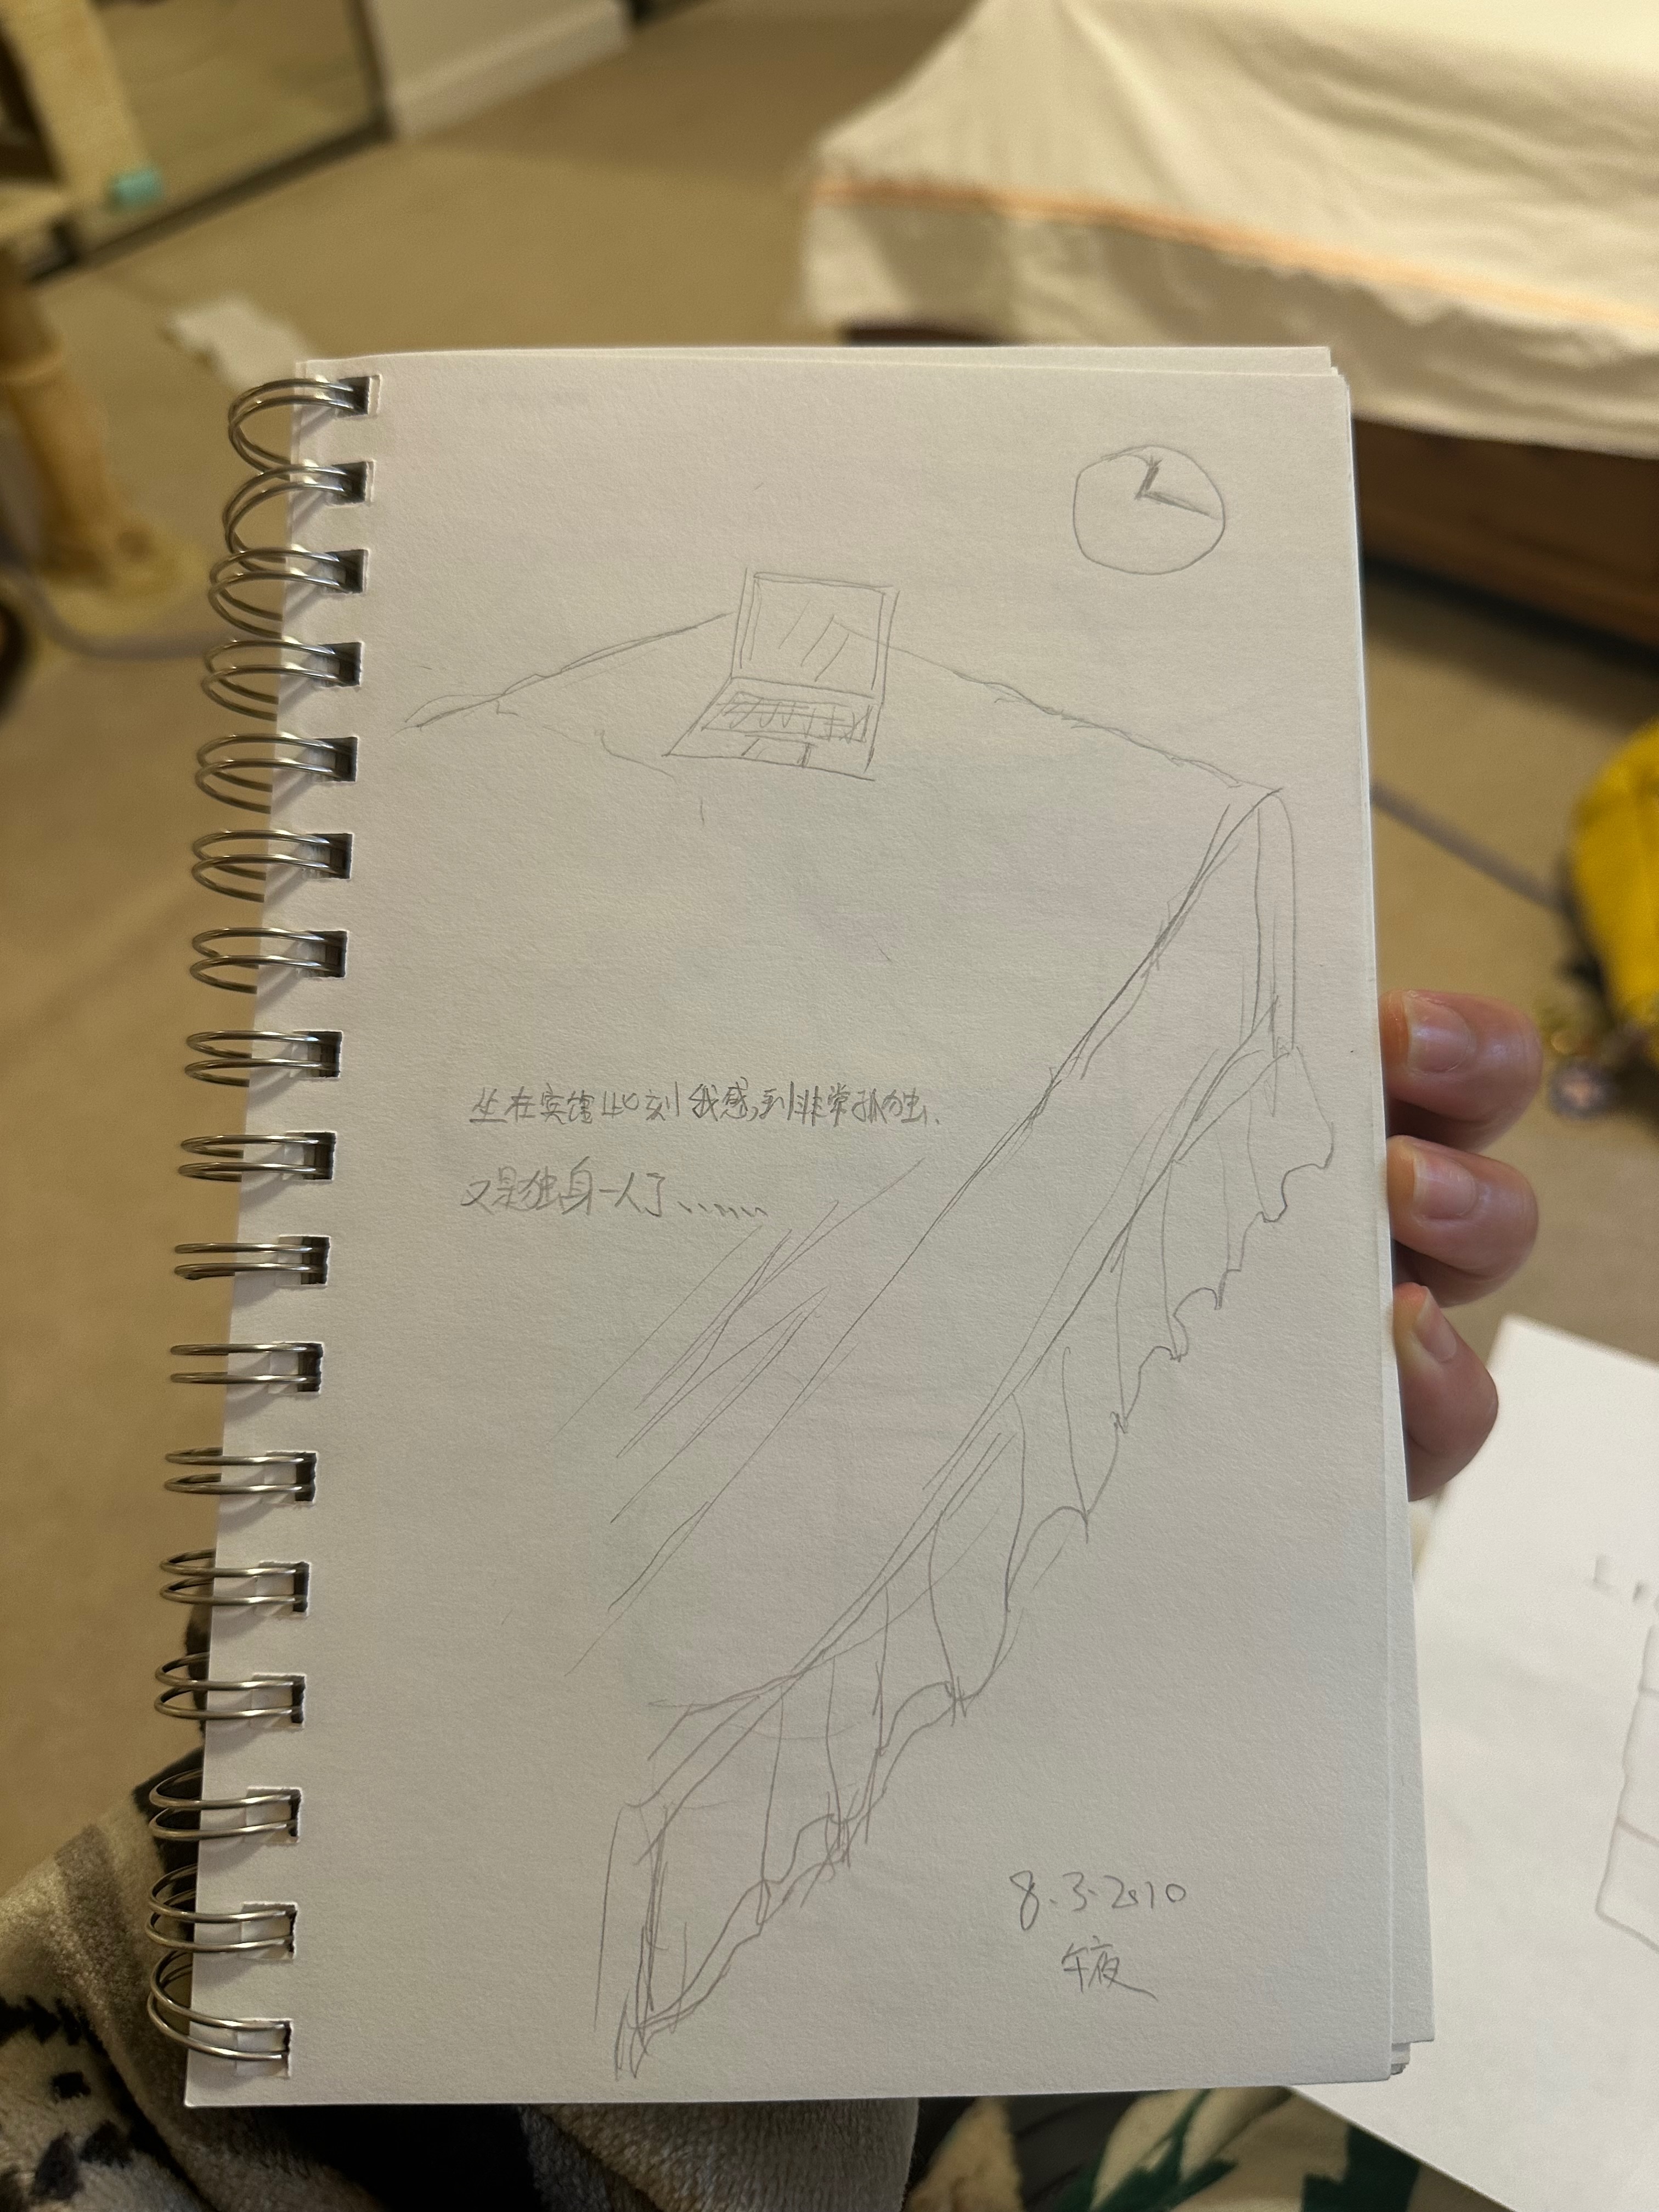 坐在宾馆此刻我感到非常孤独.
又是独身一人了......
8.3.2010
午夜